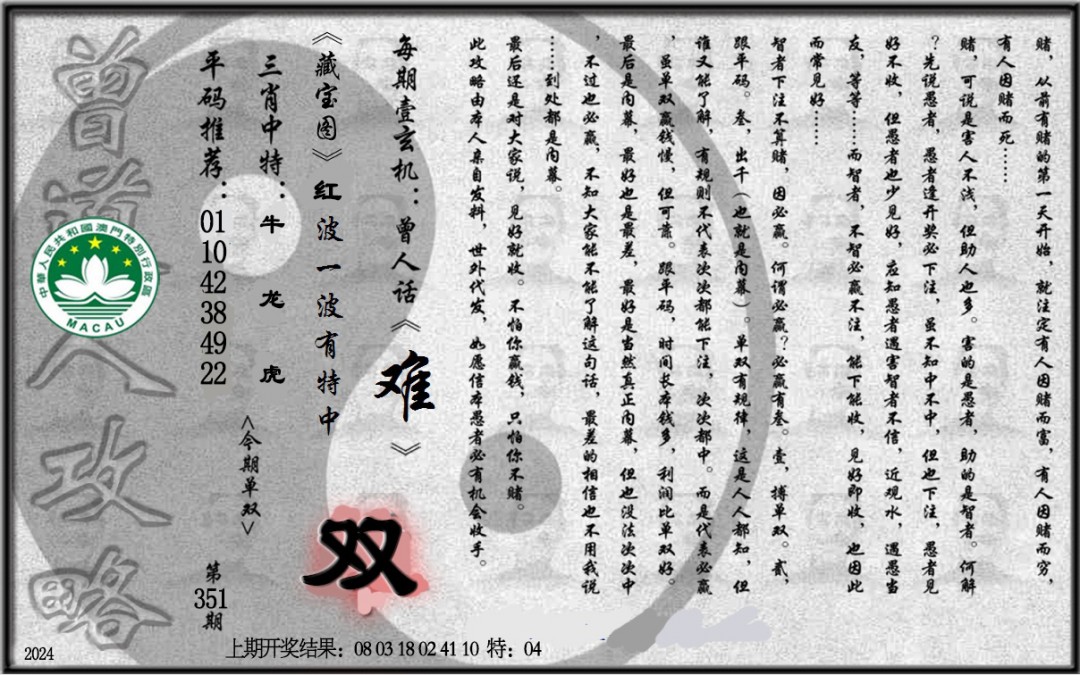 赌，从前有赌的第一天开始，就注定有人因赌而富，有人因赌而穷，
有人因赌而死……
赌，可说是害人不浅，但助人也多。害的是愚者，助的是智者。何解
？先说愚者，愚者逢开奖必下注，虽不知中不中，但也下注，愚者见
好不收，但愚者也少见好，应知愚者遇害智者不信，近观水，遇愚当
友，等等……而智者，不智必赢不注，能下能收，见好即收，也因此
而常见好……
智者下注不算赌，因必赢。何谓必赢？必赢有叁。壹，搏单双。贰，
跟平码。叁，出千（也就是内幕）。单双有规律，这是人人都知，但
谁又能了解，有规则不代表次次都能下注，次次都中。而是代表必赢
，虽单双赢钱慢，但可靠。跟平码，时间长本钱多，利润比单双好。
最后是内幕，最好也是最差，最好是当然真正内幕，但也没法次次中
，不过也必赢，不知大家能不能了解这句话，最差的相信也不用我说
……到处都是内幕。
最后还是对大家说，见好就收。不怕你赢钱，只怕你不赌。
此攻略由本人亲自发料，世外代发，如愿信本愚者必有机会收手。
每期壹玄机：曾人话《难》
《藏宝图》红波一波有特中
三肖中特：牛龙虎
<今期单双>
双
平码推荐：01 10 42 38 49 22
第351期
曾道人攻略
中華人民共和國澳門特別行政區
MACAU
2024
上期开奖结果：08 03 18 02 41 10 特：04